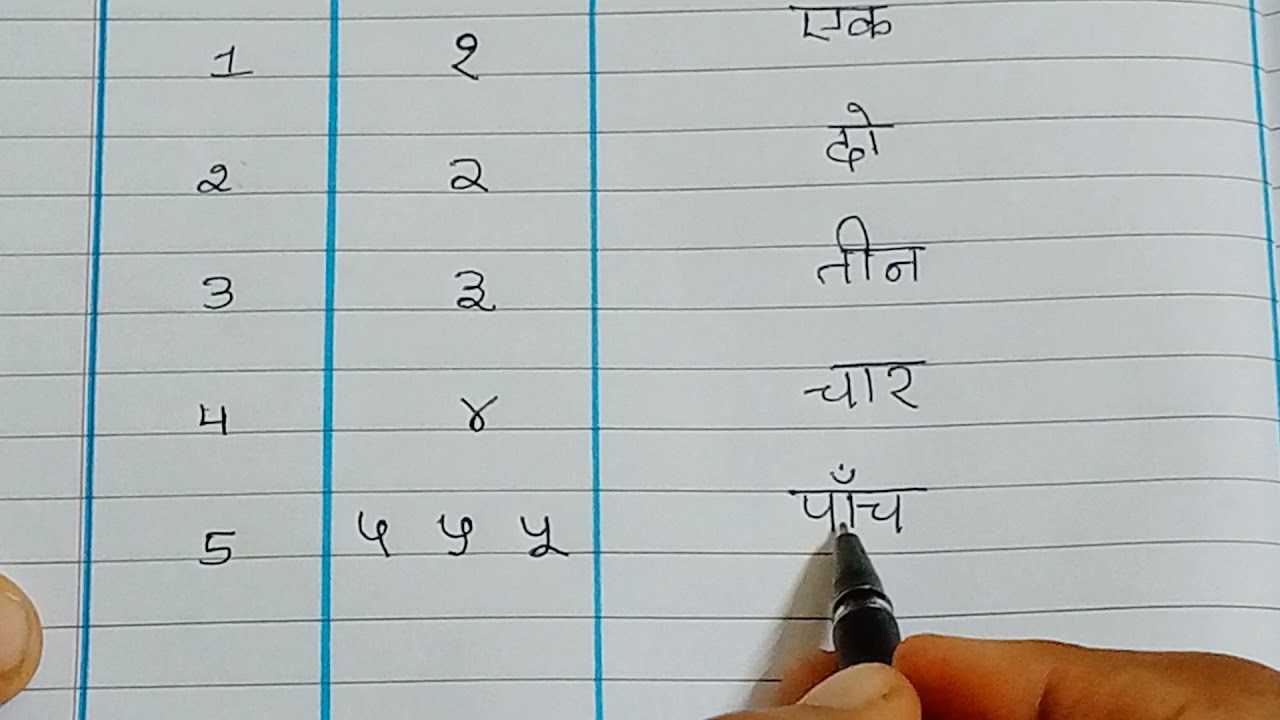 1 १ एक
2 २ दो
3 ३ तीन
4 ४ चार
5 ५ ५ ५ पाँच